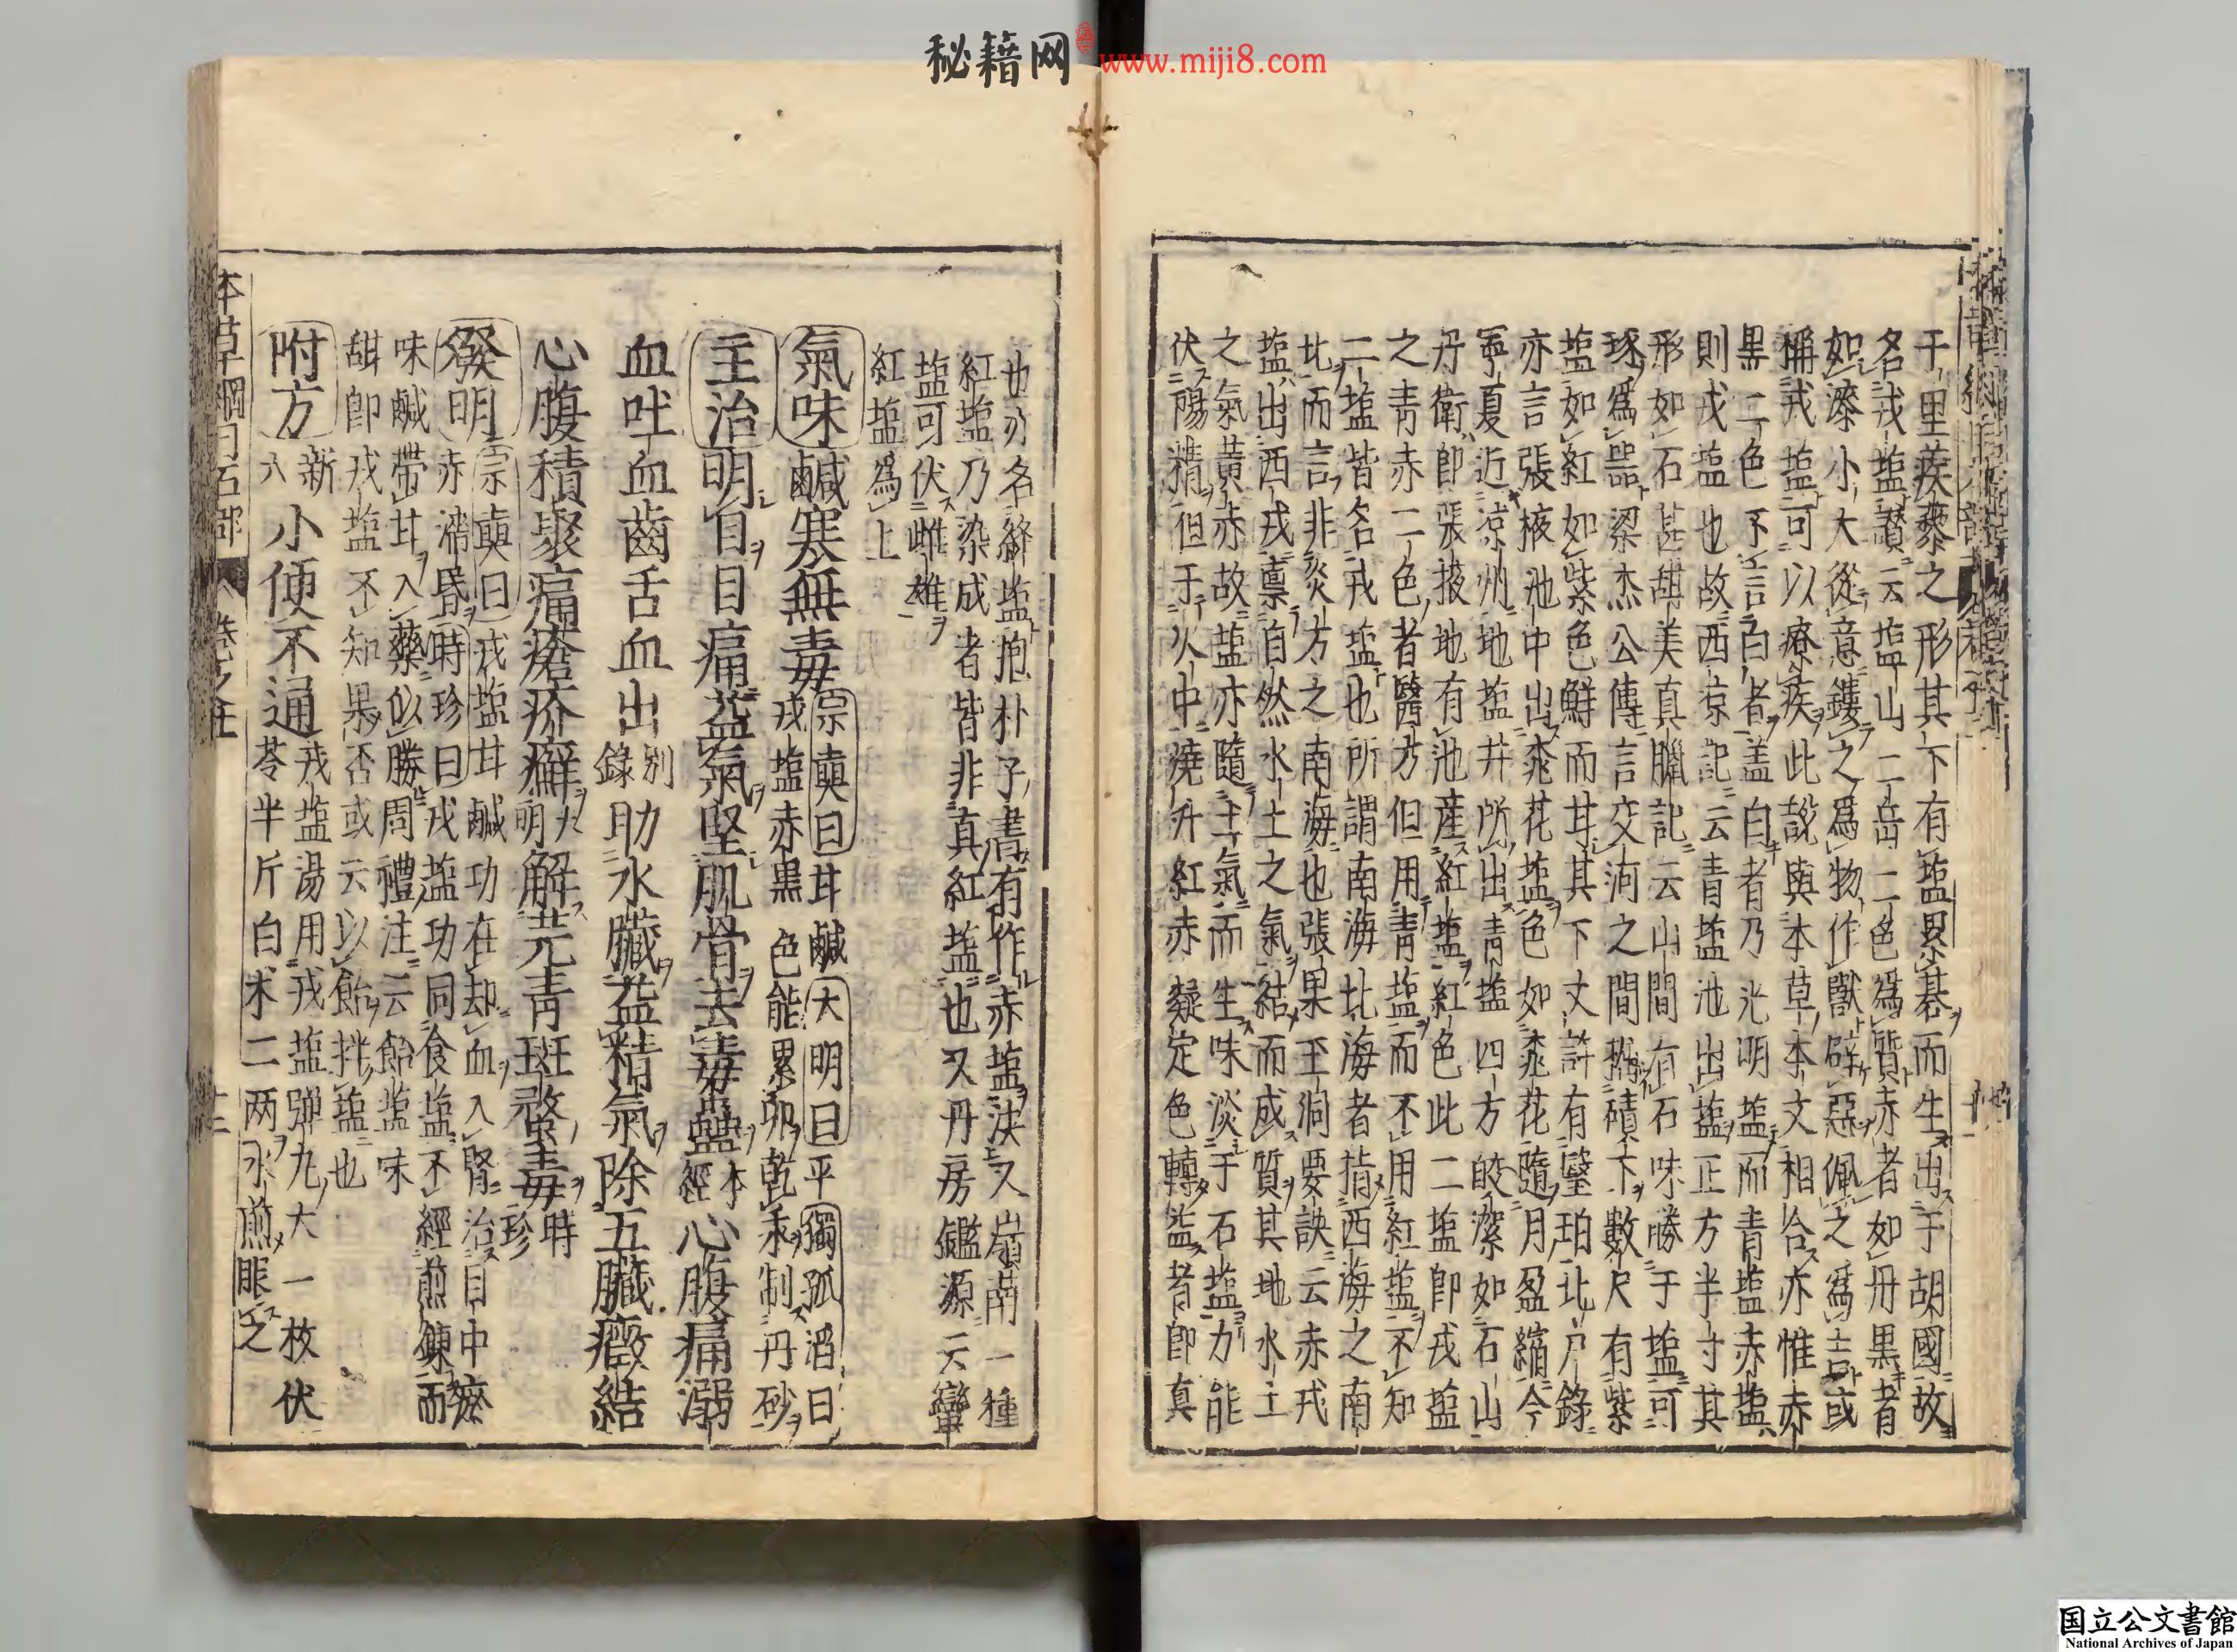 秘籍网 www.miji8.com
千里蒺藜之形其下有盐累棊而生出于胡國故
名戎盐賛云盐山二岳二色為質赤者如丹黒者
如漆小大從意鏤之為物作獸辟惡佩之為吉或
稱戎盐可以療疾此說與本草本文相合亦惟赤
黒二色不言白者盖白者乃光明盐而青盐赤盐
則戎盐也故西凉記云青盐池出盐正方半寸其
形如石甚甜美真臘記云山間有石味勝于盐可
琢為器梁杰公傳言交河之間掘磧下數尺有紫
盐如紅如紫色鮮而甘其下丈許有瑿珀北户錄
亦言張掖池中出桃花盐色如桃花隨月盈縮今
寧夏近凉州地盐井所出青盐四方皎潔如石山
丹衛即張掖地有池産紅盐紅色此二盐即戎盐
之青赤二色者醫方但用青盐而不用紅盐不知
二盐皆名戎盐也所謂南海北海者指西海之南
北而言非炎方之南海也張果玉洞要訣云赤戎
盐出西戎禀自然水土之氣結而成質其地水土
之氣黄赤故盐亦隨土氣而生味淡于石盐力能
伏陽精但于火中燒汁紅赤凝定色轉益者即真
也亦名絳盐抱朴子書有作赤盐法又嶺南一種
紅盐乃染成者皆非真紅盐也又丹房鑑源云蠻
盐可伏雌雄
紅盐為上
氣味鹹寒無毒宗奭曰甘鹹大明曰平獨孤滔曰
戎盐赤黒色能累卵乾汞制丹砂
主治明目目痛益氣堅肌骨去毒蠱本經心腹痛溺
血吐血齒舌血出别錄助水臟益精氣除五臟癥結
心腹積聚痛瘡疥癬大明解芫青斑蝥毒時珍
發明宗奭曰戎盐甘鹹功在却血入腎治目中瘀
赤澁昏時珍曰戎盐功同食盐不經煎鍊而
味鹹帶甘入藥似勝周禮注云飴盐味
甜即戎盐不知果否或云以飴拌盐也
附方新六小便不通戎盐湯用戎盐弾丸大一枚伏
苓半斤白术二两水煎服之
本草綱目石部 卷之十一 十二
国立公文書館
National Archives of Japan